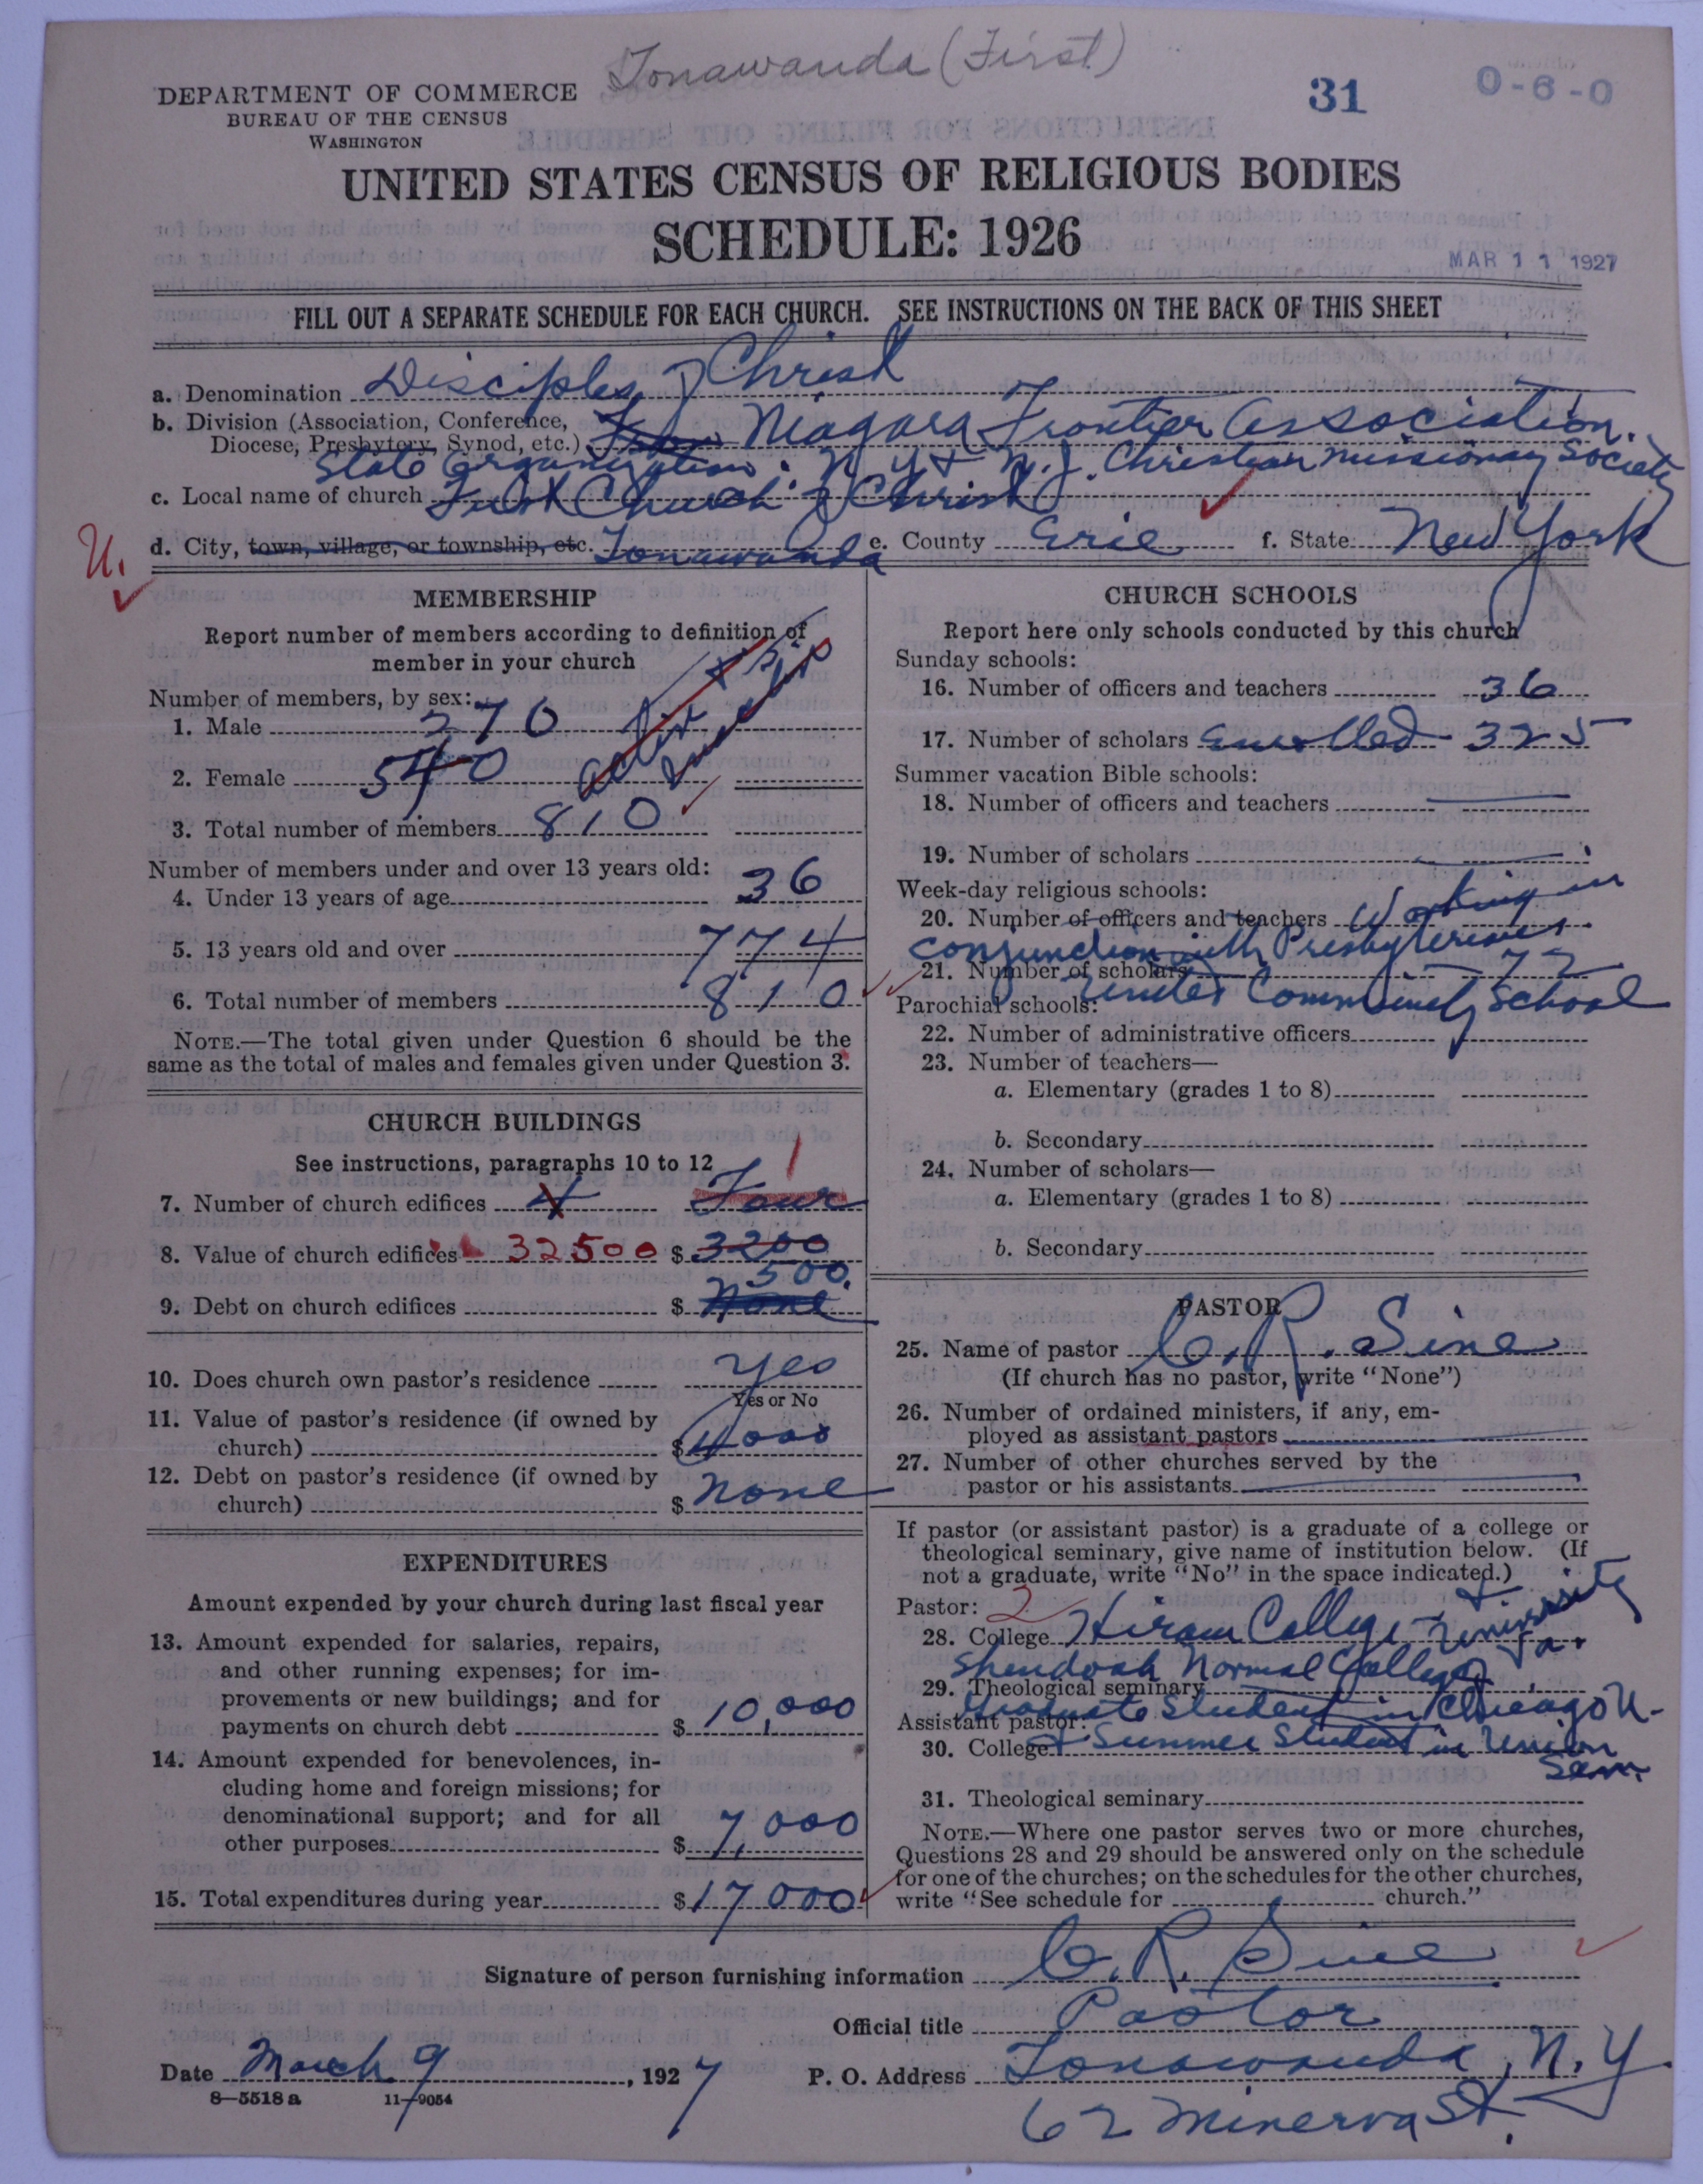 Tonawanda (First)
DEPARTMENT OF COMMERCE
BUREAU OF THE CENSUS
WASHINGTON
31
0-6-0
UNITED STATES CENSUS OF RELIGIOUS BODIES
SCHEDULE: 1926
MAR 11 1927
FILL OUT A SEPARATE SCHEDULE FOR EACH CHURCH. SEE INSTRUCTIONS ON THE BACK OF THIS SHEET
a. Denomination Disciples of Christ
b. Division (Association, Conference,
Diocese, Presbytery, Synod, etc.) Niagara Frontier Association.
State Organization. N.Y. & N.J. Christian Missionary Society
c. Local name of church First Church of Christ
U.
d. City, town, village, or township, etc. Tonawanda e. County Erie f. State New York
MEMBERSHIP
Report number of members according to definition of
member in your church
Number of members, by sex:
1. Male 270
2. Female 540
3. Total number of members 810
Number of members under and over 13 years old:
4. Under 13 years of age 36
5. 13 years old and over 774
6. Total number of members 810
NOTE.—The total given under Question 6 should be the
same as the total of males and females given under Question 3.
CHURCH BUILDINGS
See instructions, paragraphs 10 to 12
1
7. Number of church edifices 4 Four
8. Value of church edifices 32500 $ 3200
500.
9. Debt on church edifices $ None
10. Does church own pastor's residence Yes
Yes or No
11. Value of pastor's residence (if owned by
church) $ 4000
12. Debt on pastor's residence (if owned by
church) $ None
EXPENDITURES
Amount expended by your church during last fiscal year
13. Amount expended for salaries, repairs,
and other running expenses; for im-
provements or new buildings; and for
payments on church debt $ 10,000
14. Amount expended for benevolences, in-
cluding home and foreign missions; for
denominational support; and for all
other purposes $ 7,000
15. Total expenditures during year $ 17000
CHURCH SCHOOLS
Report here only schools conducted by this church
Sunday schools:
16. Number of officers and teachers 36
17. Number of scholars Enrolled 325
Summer vacation Bible schools:
18. Number of officers and teachers
19. Number of scholars
Week-day religious schools:
20. Number of officers and teachers Working in
conjunction with Presbyterians
21. Number of scholars 72
United Community School
Parochial schools:
22. Number of administrative officers
23. Number of teachers—
a. Elementary (grades 1 to 8)
b. Secondary
24. Number of scholars—
a. Elementary (grades 1 to 8)
b. Secondary
PASTOR
25. Name of pastor C. R. Sine
(If church has no pastor, write "None")
26. Number of ordained ministers, if any, em-
ployed as assistant pastors
27. Number of other churches served by the
pastor or his assistants
If pastor (or assistant pastor) is a graduate of a college or
theological seminary, give name of institution below. (If
not a graduate, write "No" in the space indicated.)
Pastor: 2
28. College Hiram College & University
Shendoah Normal College Va.
29. Theological seminary
Graduate Student in Chicago U.
Assistant pastor:
30. College & Summer Student in Union
Sem.
31. Theological seminary
NOTE.—Where one pastor serves two or more churches,
Questions 28 and 29 should be answered only on the schedule
for one of the churches; on the schedules for the other churches,
write "See schedule for church."
Signature of person furnishing information C. R. Sine
Official title Pastor
Date March 9, 1927 P. O. Address Tonawanda, N.Y.
8—5518a 11—9054
62 Minerva St.